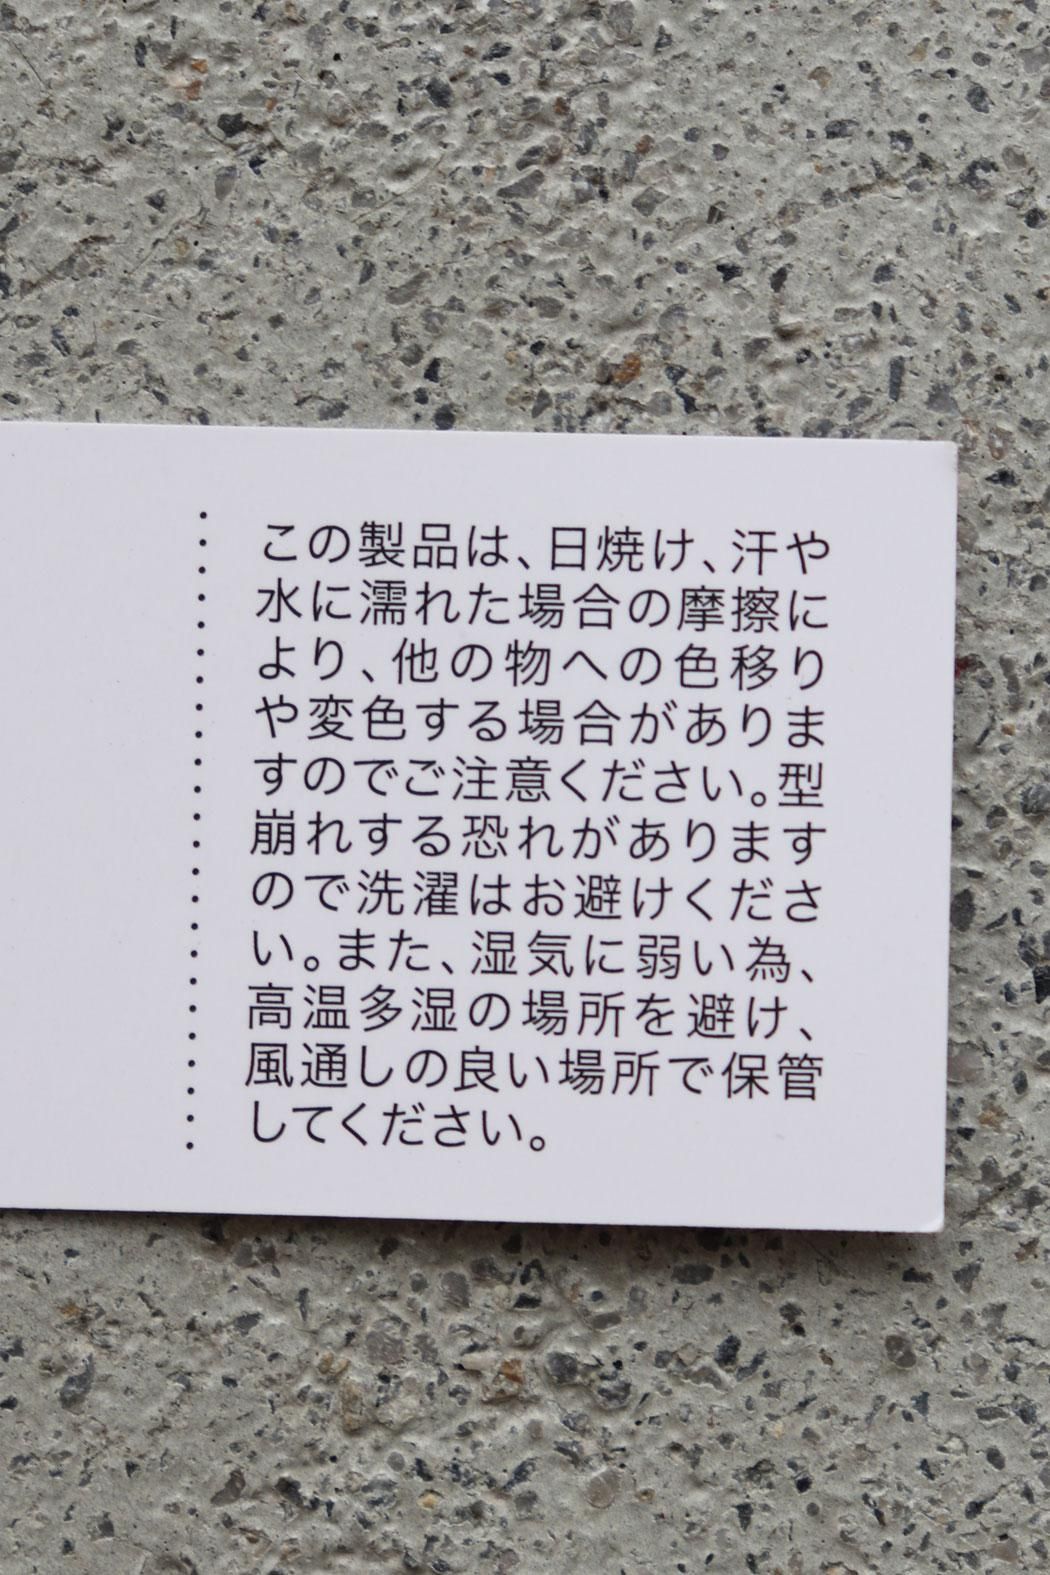 この製品は、日焼け、汗や
水に濡れた場合の摩擦に
より、他の物への色移り
や変色する場合がありま
すのでご注意ください。型
崩れする恐れがあります
ので洗濯はお避けくださ
い。また、湿気に弱い為、
高温多湿の場所を避け、
風通しの良い場所で保管
してください。